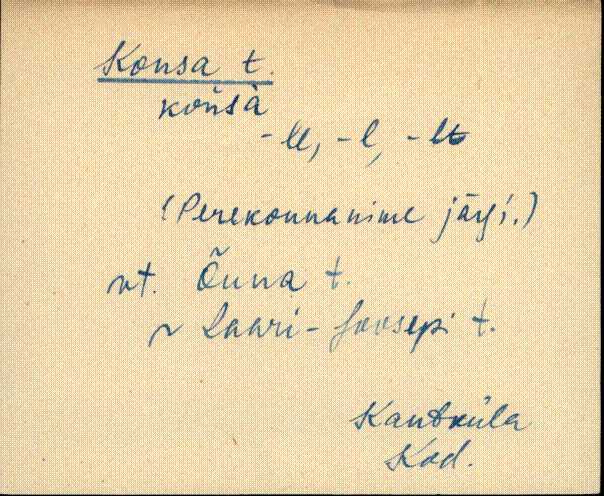 Konsa t.
końsà
-lle, -l, -lt
(Perekonnanime järgi.)
vt. Õunna t.
" Laari-Joosepi t.
Kantküla
Kod.